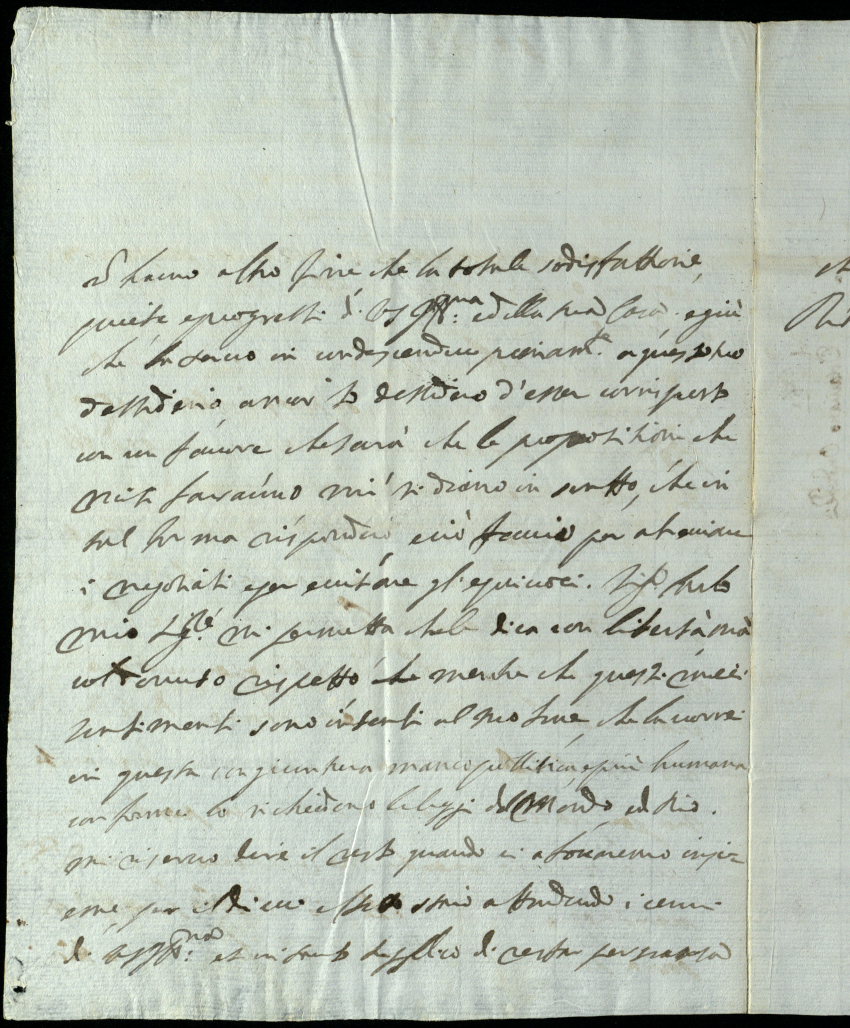 hanno altro fine che la totale sodisfattione
quiete e progressi di VS Ill:ma e della sua Casa. e già
che la servo in condescendere pienam.te a questo suo
dessiderio ancor Io dessidero d'esser corrisposto
con un favore che sarà che le propositioni che
mi si faranno mi si diano in scritto, che in
tal forma risponderò e ciò faccio per abreviare
i negotiati e per evitare gl'equivoci.
mio Sig.re mi permetta che le dica con libertà mà
col dovuto rispetto che mentre che questi miei
sentimenti sono intenti al suo fine che la vorrei
in questa congiuntura manco pollitica e più humana
conforme lo richiedono le leggi del Mondo e di Dio.
mi riservo dire il resto quando ci aboccaremo insi=
eme per il di cui effetto starò attendendo i cenni
di VS Ill:ma et in tanto supplico di restar persuasa